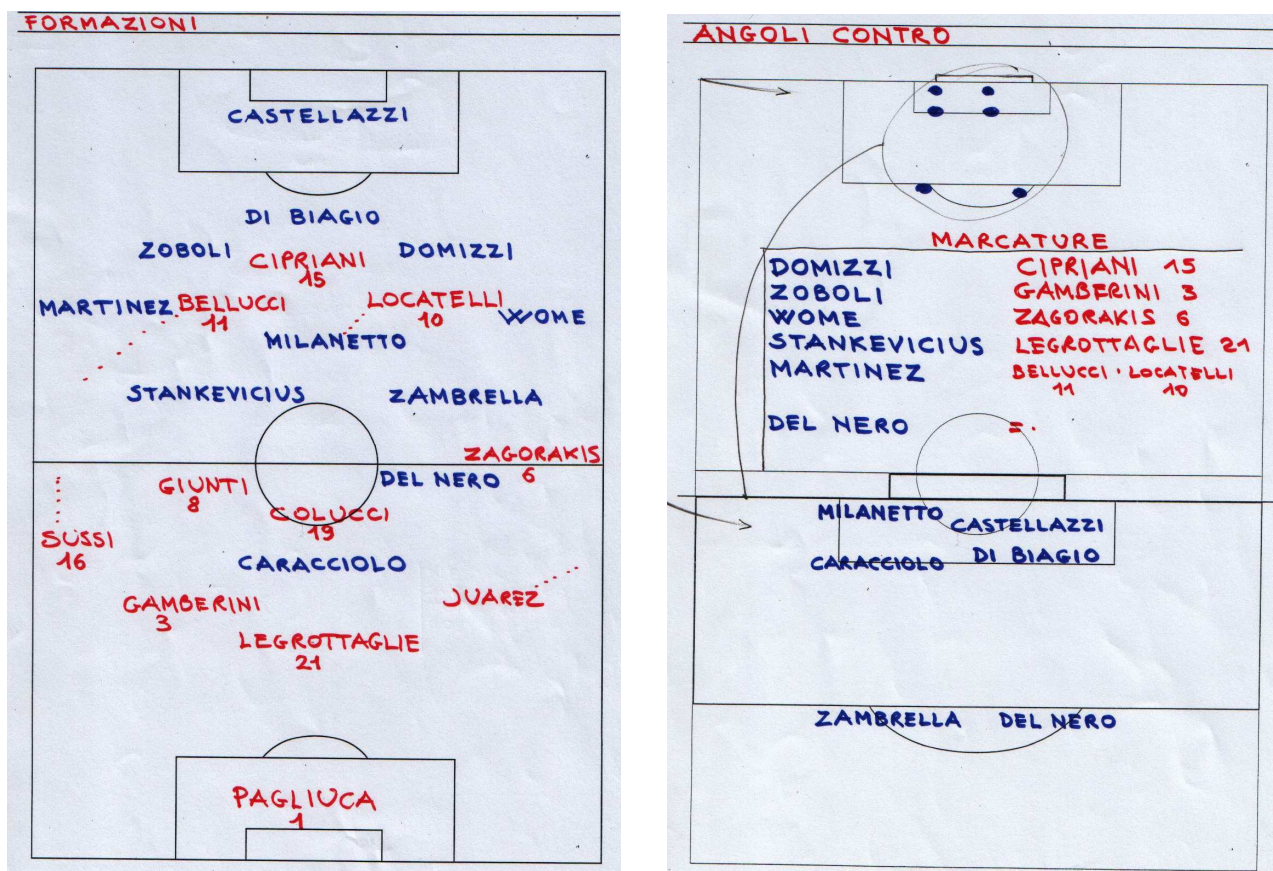 FORMAZIONI
CASTELLAZZI
DI BIAGIO
ZOBOLI
CIPRIANI
15
DOMIZZI
MARTINEZ
BELLUCCI
11
LOCATELLI
10
WOME
MILANETTO
STANKEVICIUS
ZAMBRELLA
ZAGORAKIS
6
GIUNTI
8
DEL NERO
COLUCCI
19
SUSSI
16
CARACCIOLO
GAMBERINI
3
JUAREZ
LEGROTTAGLIE
21
PAGLIUCA
1
ANGOLI CONTRO
MARCATURE
DOMIZZI CIPRIANI 15
ZOBOLI GAMBERINI 3
WOME ZAGORAKIS 6
STANKEVICIUS LEGROTTAGLIE 21
MARTINEZ BELLUCCI · LOCATELLI
11 10
DEL NERO = ·
MILANETTO CASTELLAZZI
CARACCIOLO DI BIAGIO
ZAMBRELLA DEL NERO